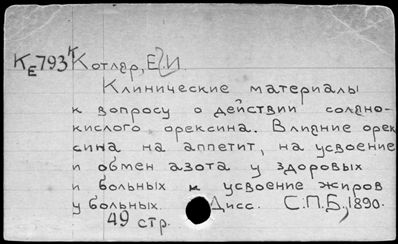 КЕ793к Котляр, Е. И.
Клинические материалы
к вопросу о действии соляно-
кислого орексина. Влияние орек
сина на аппетит, на усвоение
и обмен азота у здоровых
и больных и усвоение жиров
у больных. Дисс. С.П.Б., 1890.
49 стр.